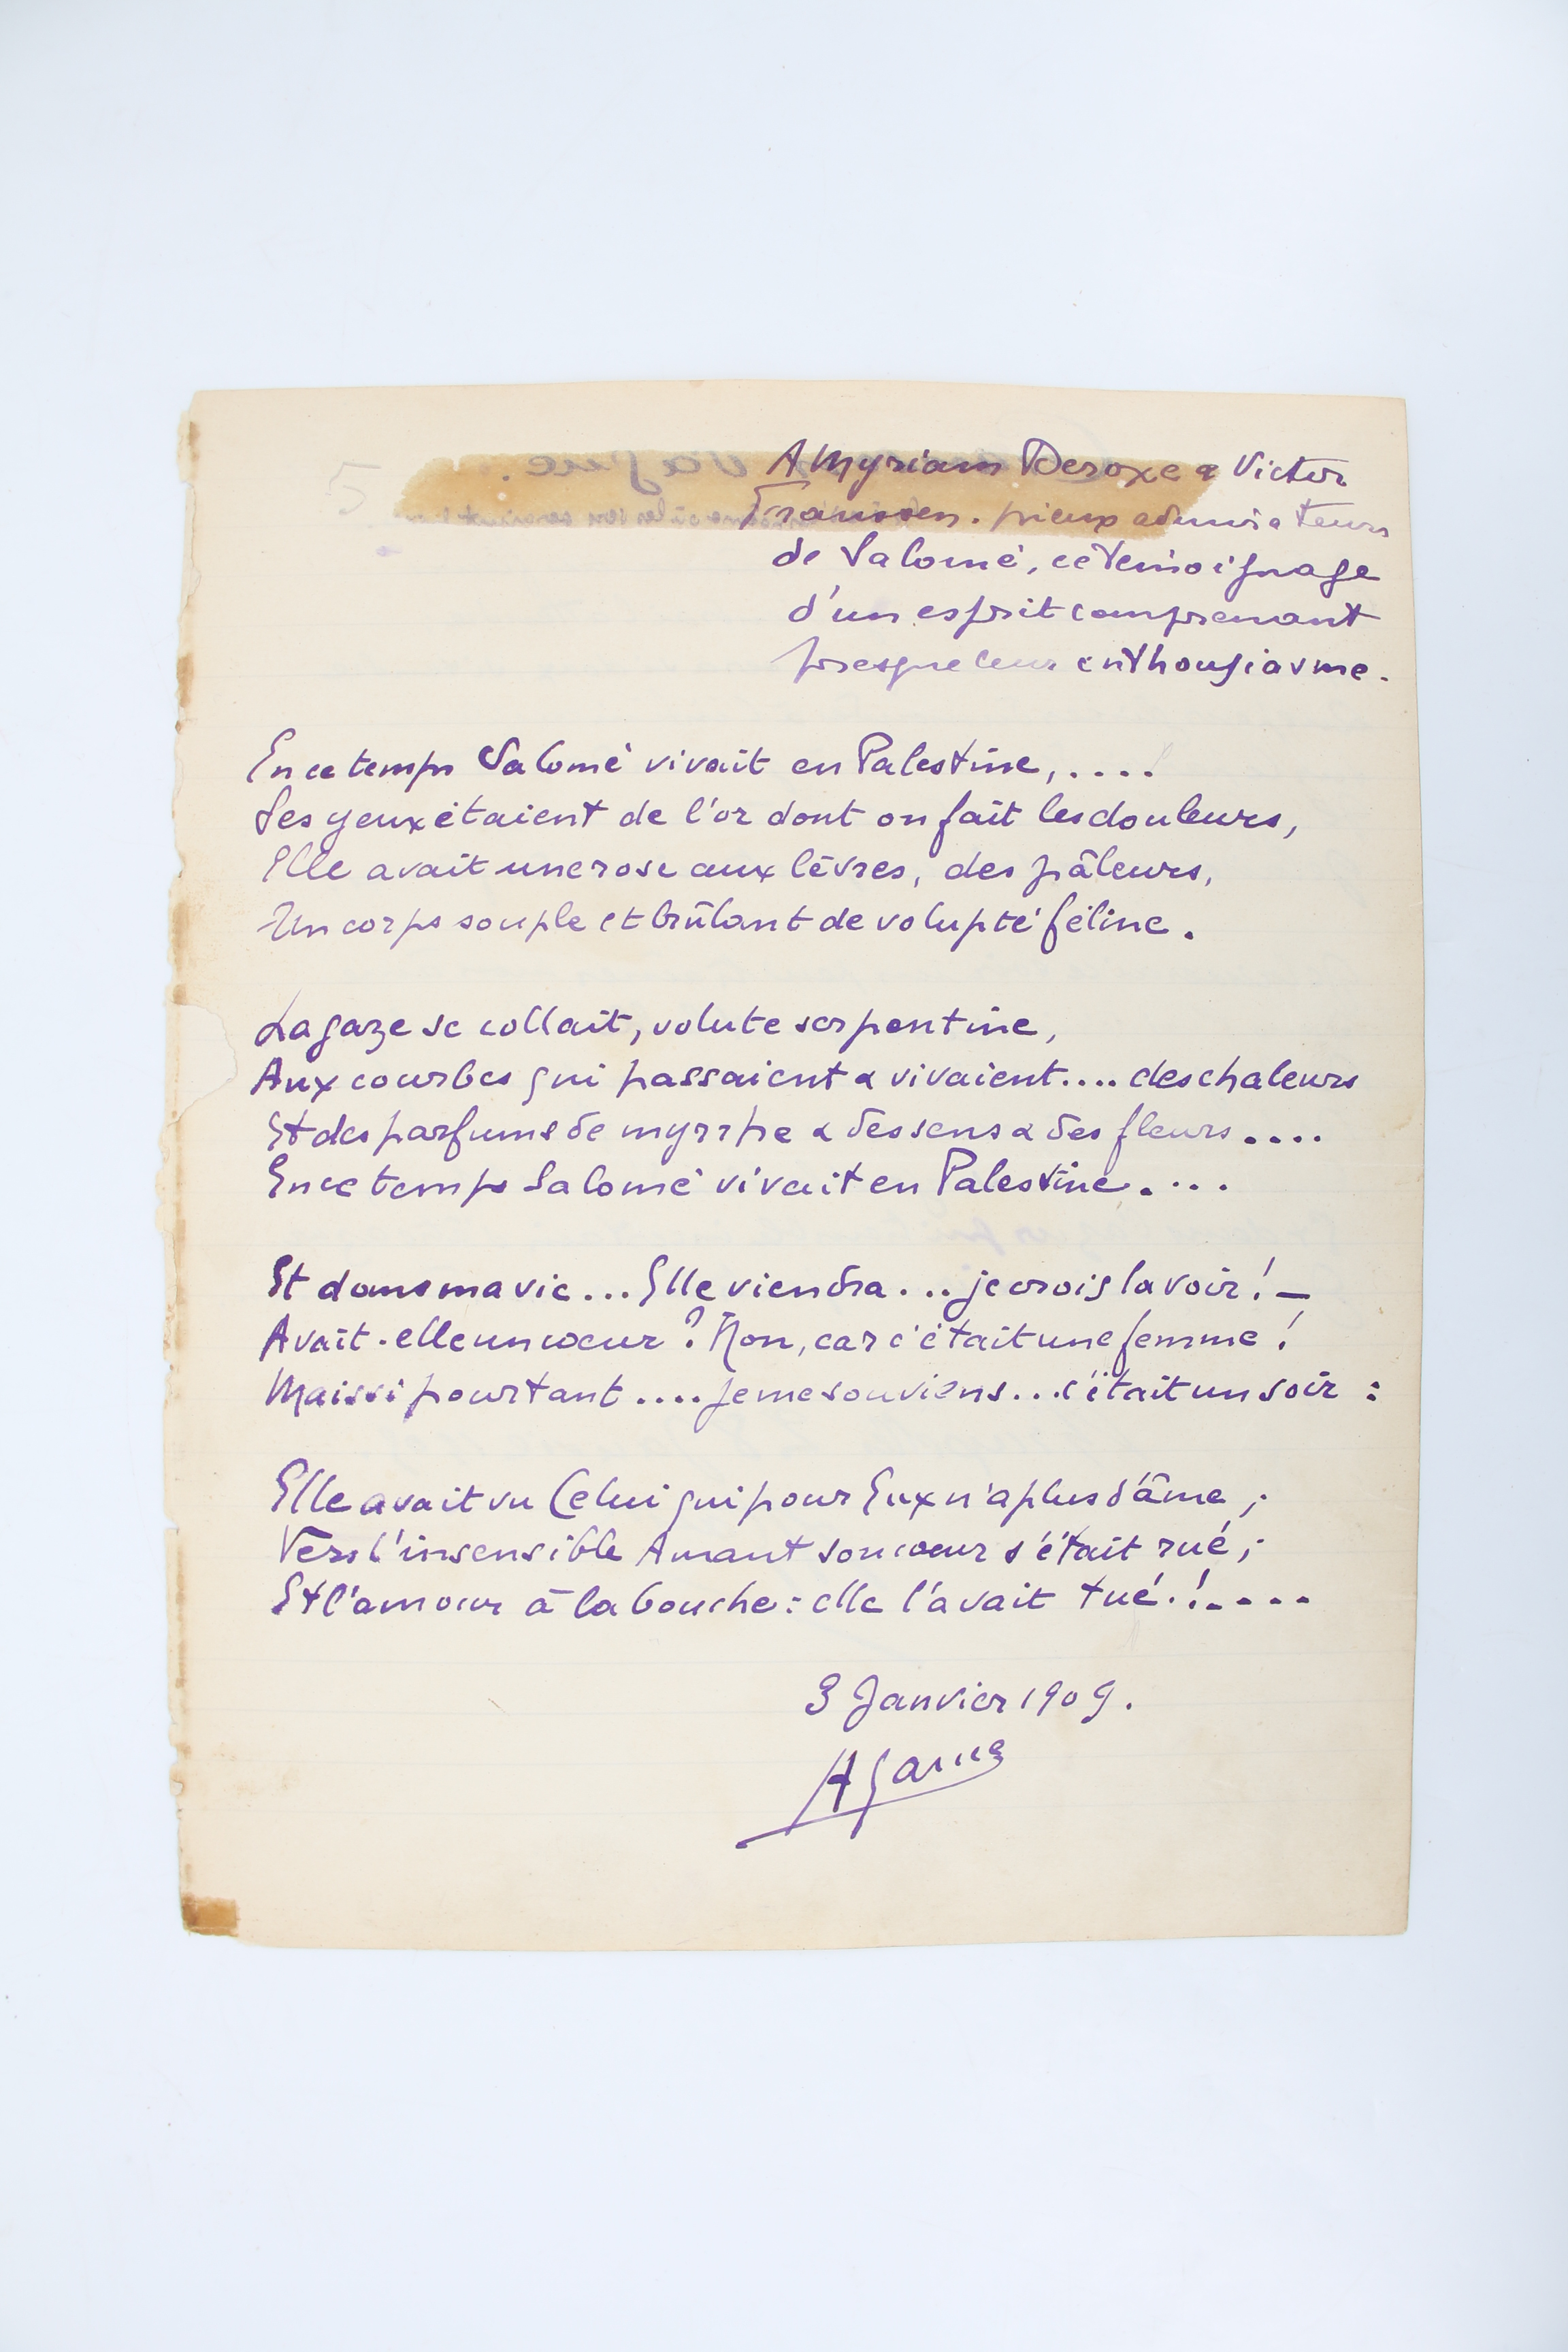 A Myriam Deroxe & Victor
Franssen. pieux admirateurs
de Salomé, ce témoignage
d'un esprit comprenant
presque leur enthousiasme.
En ce temps Salomé vivait en Palestine,....
Ses yeux étaient de l'or dont on fait les douleurs,
Elle avait une rose aux lèvres, des pâleurs,
Un corps souple et brûlant de volupté féline.
La gaze se collait, volute serpentine,
Aux courbes qui passaient & vivaient.... des chaleurs
Et des parfums de myrrhe & des sens & des fleurs....
En ce temps Salomé vivait en Palestine....
Et dans ma vie... Elle viendra... je crois la voir! —
Avait-elle un coeur? Non, car c'était une femme!
Mais si pourtant.... Je me souviens... c'était un soir :
Elle avait vu Celui qui pour Eux n'a plus d'âme ;
Vers l'insensible Amant son coeur s'était rué ;
Et l'amour à la bouche : elle l'avait tué.!....
3 Janvier 1909.
5